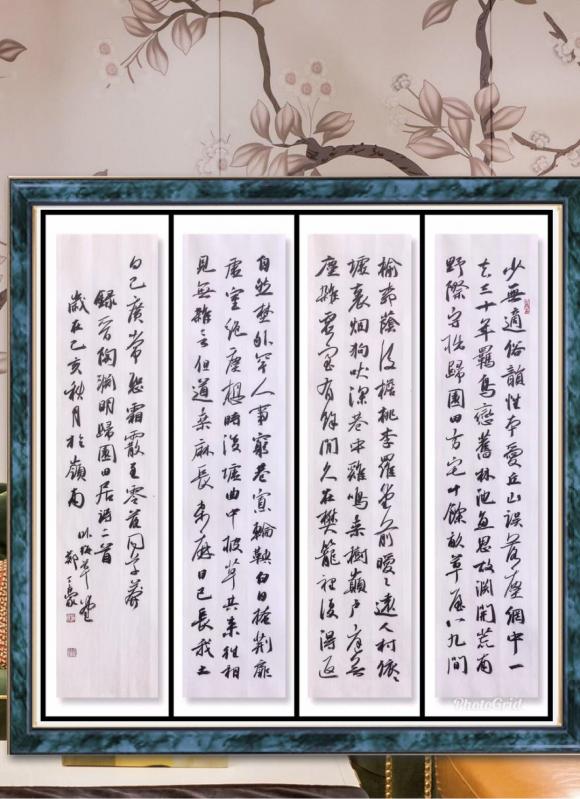 少無適俗韻性本愛丘山誤落塵網中一
去三十年羈鳥戀舊林池魚思故淵開荒南
野際守拙歸園田方宅十餘畝草屋八九間
榆柳蔭後檐桃李羅堂前曖〻遠人村依〻
墟裏烟狗吠深巷中雞鳴桑樹顛户庭無
塵雜虚室有餘閒久在樊籠裡復得返
自然野外罕人事窮巷寡輪鞅白日掩荆扉
虚室絶塵想時復墟曲中披草共来往相
見無雜言但道桑麻長桑麻日已長我土
日已廣常恐霜霰至零落同草莽
録晉陶淵明歸園田居詩二首
歲在己亥秋月於嶺南
草堂
鄭豪
PhotoGrid